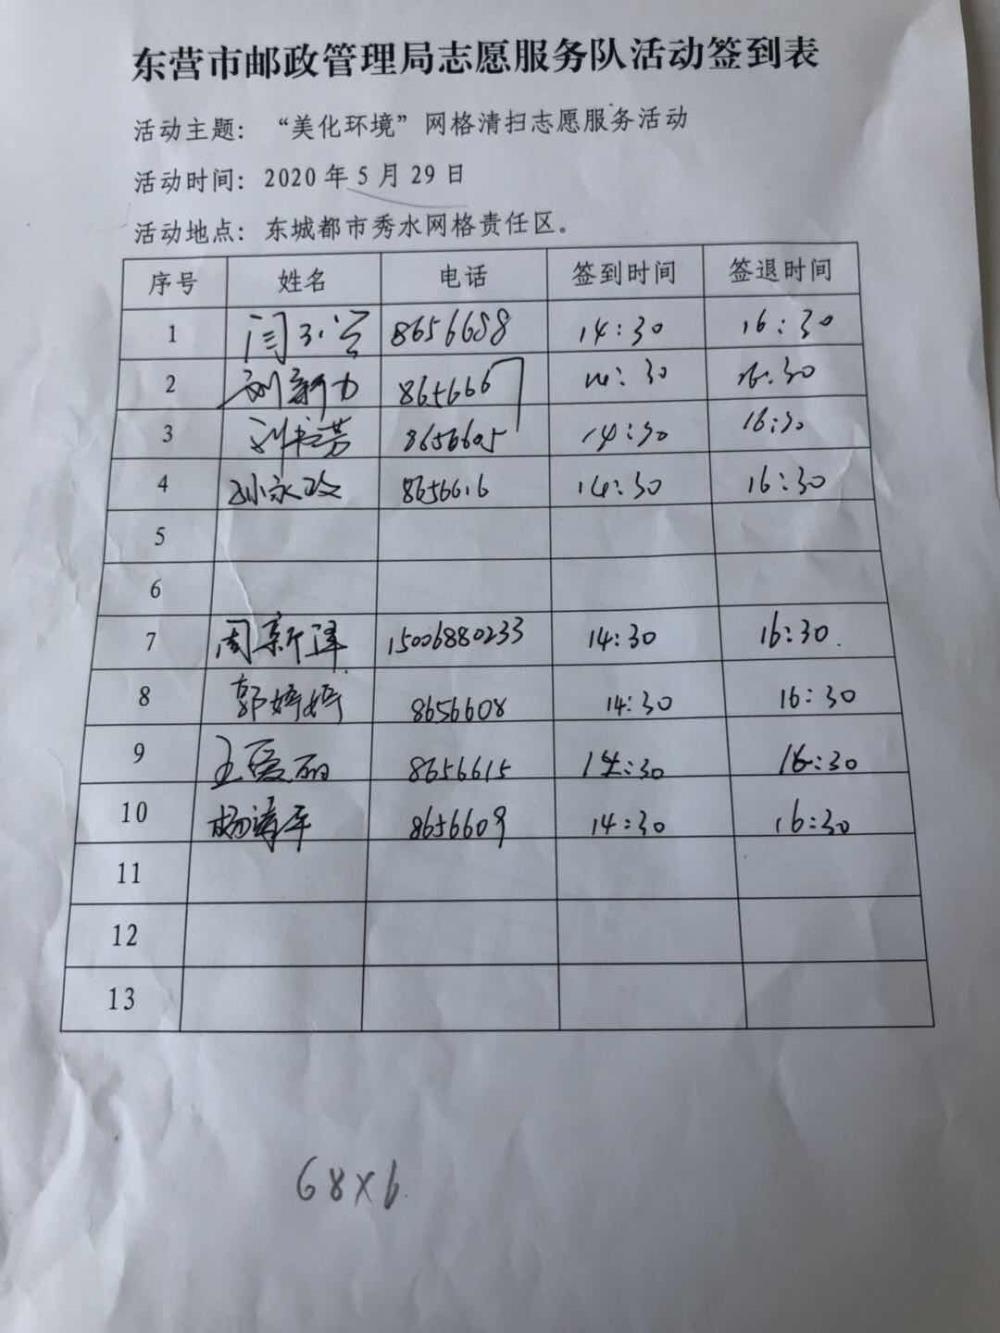 东营市邮政管理局志愿服务队活动签到表
活动主题：“美化环境”网格清扫志愿服务活动
活动时间：2020年5月29日
活动地点：东城都市秀水网格责任区。
序号 姓名 电话 签到时间 签退时间
1 闫 8656688 14:30 16:30
2 刘新力 8656667 14:30 16:30
3 刘芳 8656605 14:30 16:30
4 孙永政 8656616 14:30 16:30
5
6
7 周新泽 15006880233 14:30 16:30.
8 郭婷婷 8656608 14:30 16:30
9 王爱丽 8656615 14:30 16:30
10 杨涛 8656609 14:30 16:30
11
12
13
68×6